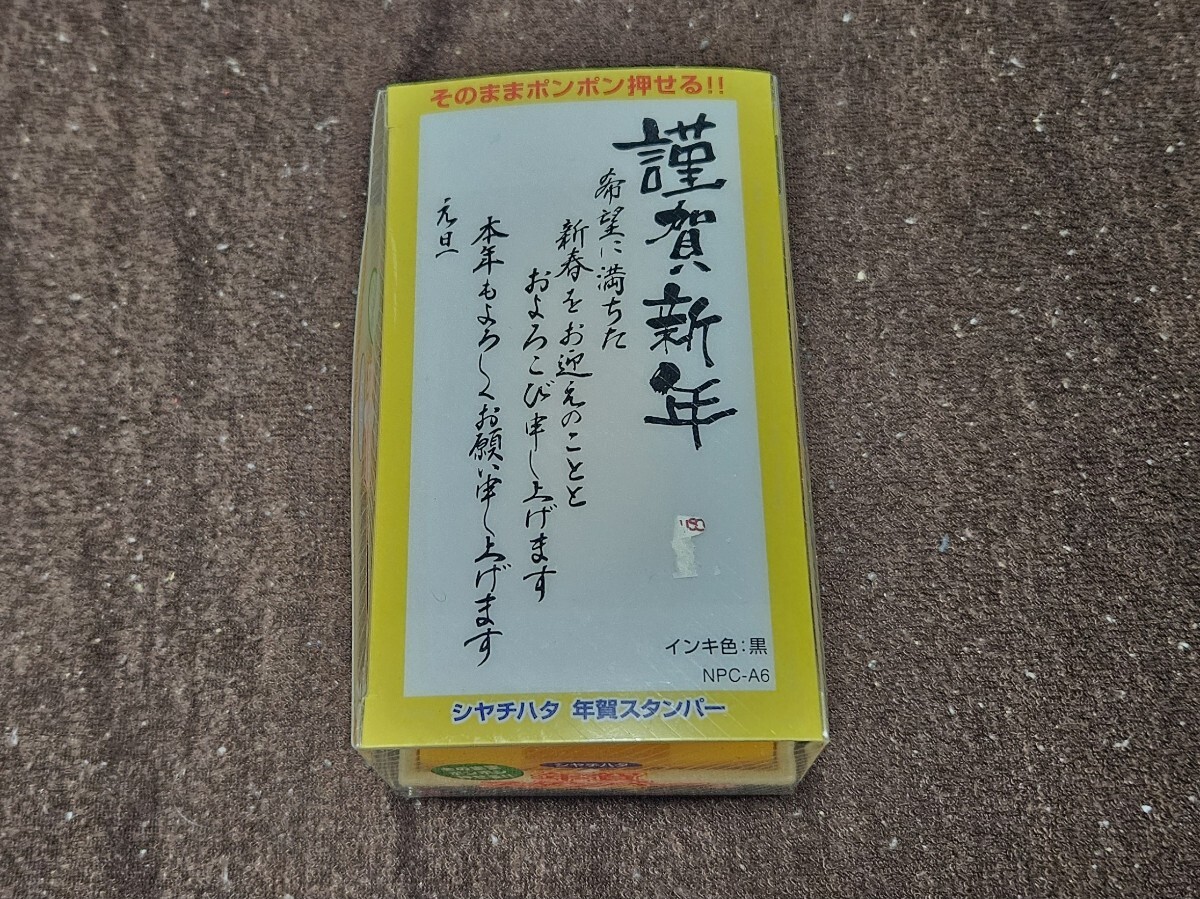 そのままポンポン押せる!!
謹賀新年
希望に満ちた
新春をお迎えのことと
およろこび申し上げます
本年もよろしくお願い申し上げます
元旦
インキ色:黒
NPC-A6
シヤチハタ 年賀スタンパー
シヤチハタ